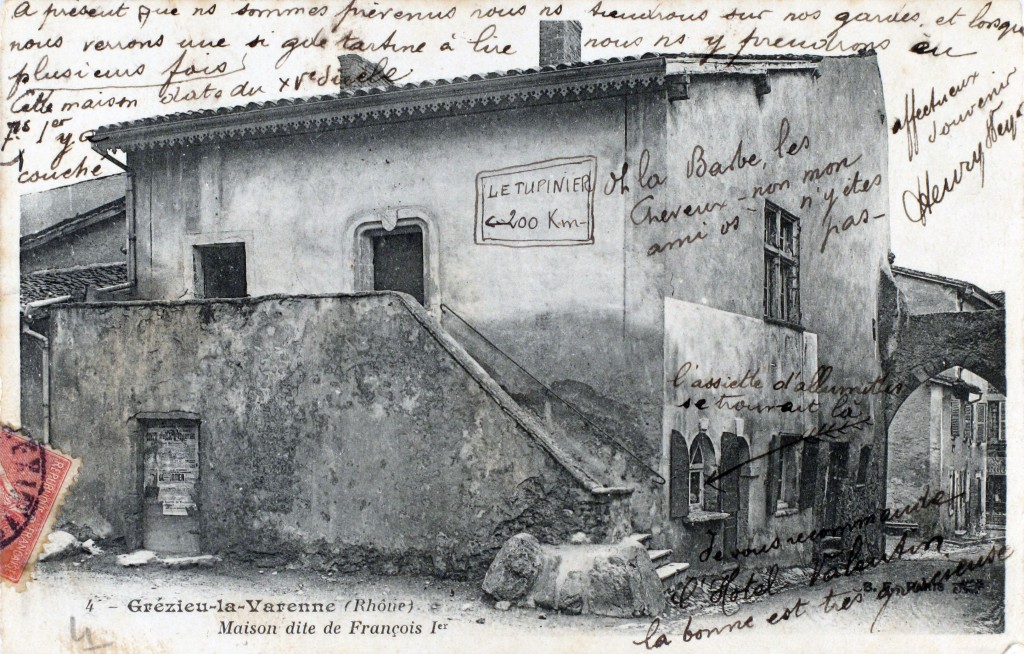 A présent que ns sommes prévenus nous ns tiendrons sur nos gardes, et lorsque
nous verrons une si gde tartine à lire nous ns y prendrons en
plusieurs fois!
Cette maison date du XVe siècle
Fs 1er y a
couché
affectueux
souvenir
Henry
LE TUPINIER
200 Km
Oh la Barbe, les
Cheveux - non mon
ami vs n'y êtes
pas -
l'assiette d'allumettes
se trouvait là
Je vous recommande
l'Hôtel Valentin
la bonne est très gracieuse
4 - Grézieu-la-Varenne (Rhône).
Maison dite de François Ier
4